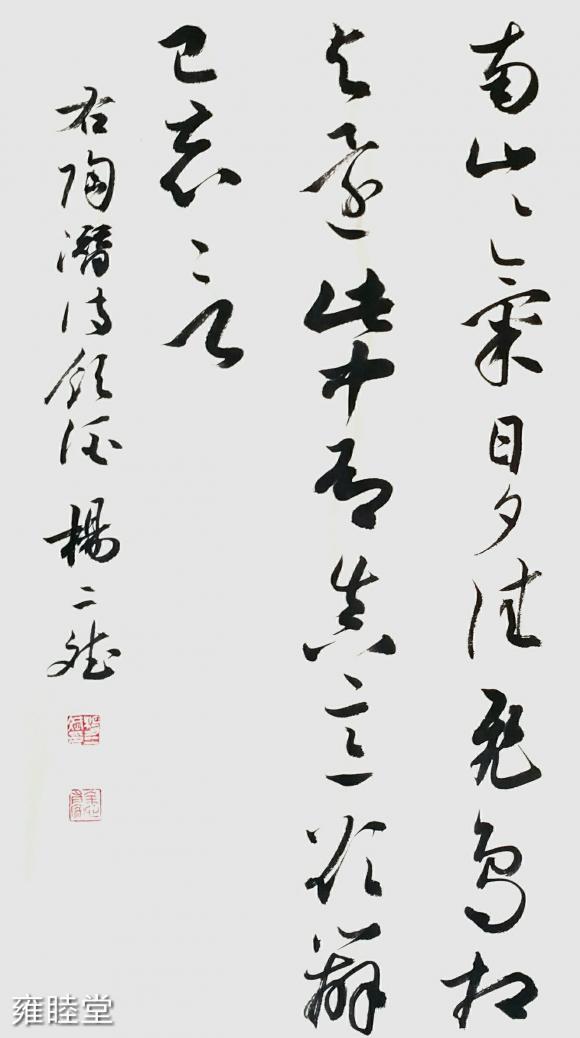 南山々氣日夕佳飛鳥相
与還此中有真意欲辨
已忘言
右陶潛詩飲酒 楊二斌
雍睦堂